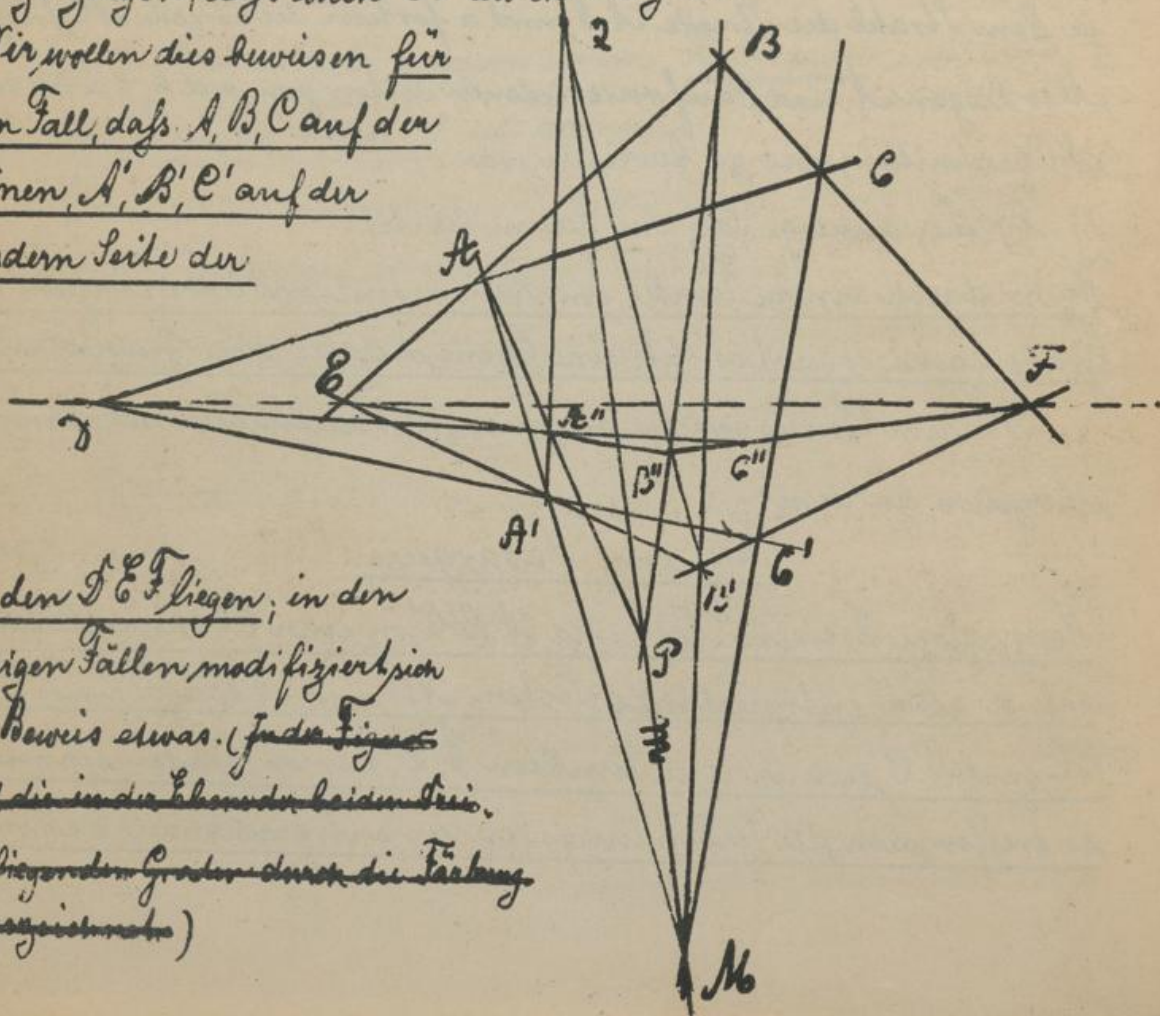 Wir wollen dies beweisen für
n Fall, dafs A, B, C auf der
inen, A', B', C' auf der
ndern Seite der
den D E F liegen; in den
igen Fällen modifiziert sich
Beweis etwas. (In der Figur
die in der Ebene der beiden Drei-
liegenden Graden durch die Färbung
)
Q
B
C
A
E
F
D
A''
B''
C''
A'
B'
C'
P
M